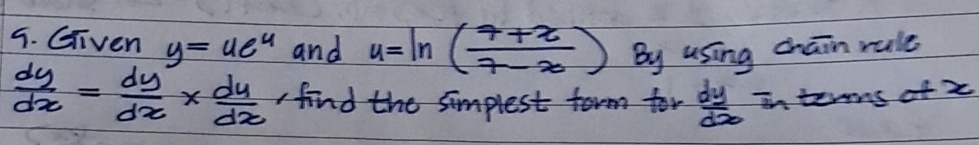 9. Given y = ue^u and u = ln ((7+x)/(7-x)) By using chain rule
dy/dx = dy/dx × du/dx, find the simplest form for dy/dx in terms of x